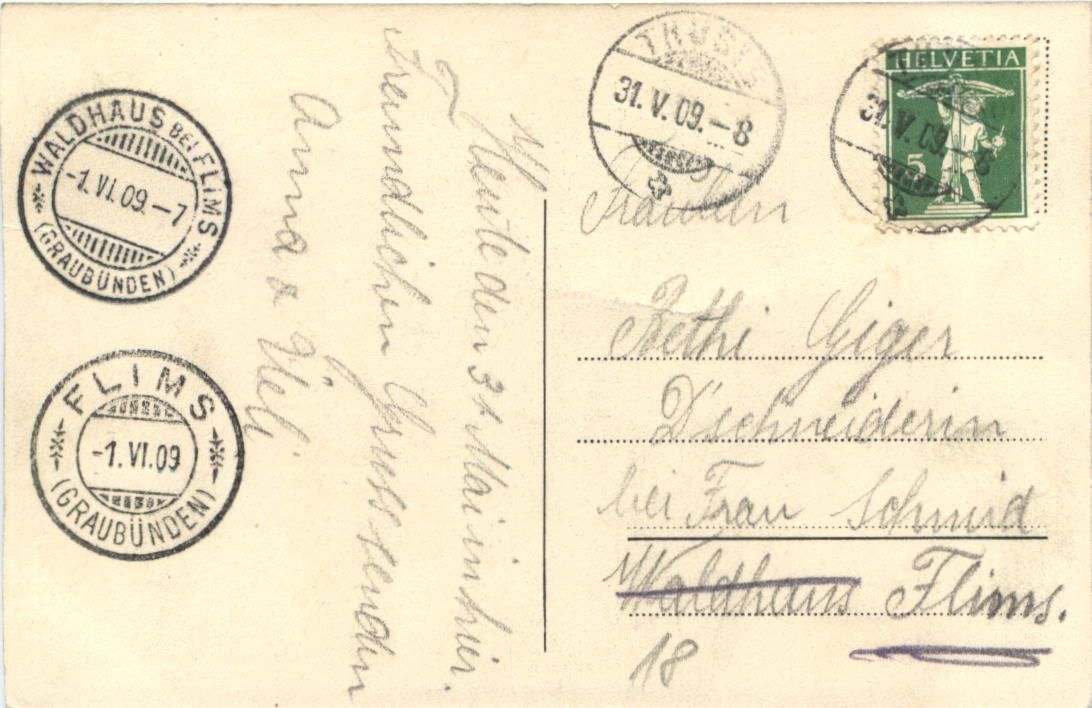 WALDHAUS BEI FLIMS
-1. VI. 09. - 7
(GRAUBÜNDEN)
FLIMS
-1. VI. 09
(GRAUBÜNDEN)
Heute den 31 Mai in hier.
Freundlichen Gruss senden
Anna & Ueli.
31. V. 09. - 8
31. V. 09. - 8
HELVETIA
5
Fräulein
Bethi Giger
D'schneiderin
bei Frau Schmid
Waldhaus Flims.
18